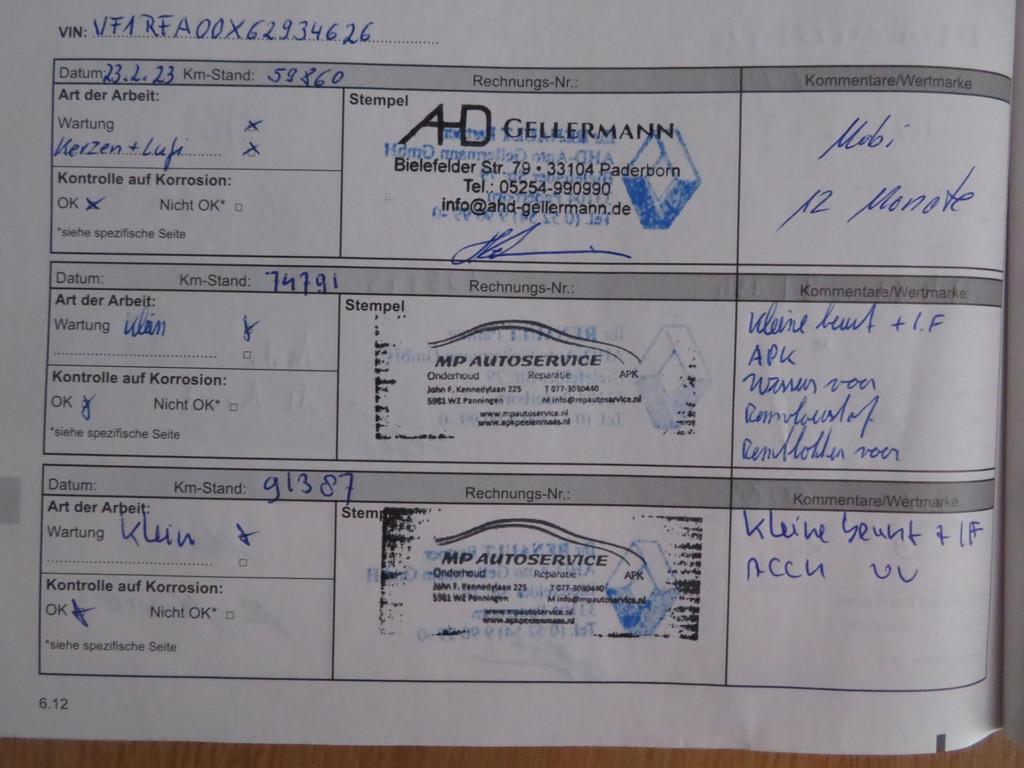 VIN: VF1RFA00X62934626
Datum: 23.2.23 Km-Stand: 59860 Rechnungs-Nr.: Kommentare/Wertmarke
Art der Arbeit:
Wartung x
Kerzen + Lufi x
Kontrolle auf Korrosion:
OK x Nicht OK*
*siehe spezifische Seite
Stempel
AHD GELLERMANN
Bielefelder Str. 79 · 33104 Paderborn
Tel.: 05254-990990
info@ahd-gellermann.de
Mobi
12 Monate
Datum: Km-Stand: 74791 Rechnungs-Nr.: Kommentare/Wertmarke
Art der Arbeit:
Wartung Klein x
Kontrolle auf Korrosion:
OK x Nicht OK*
*siehe spezifische Seite
Stempel
MP AUTOSERVICE
Onderhoud Reparatie APK
John F. Kennedylaan 225 T 077-3080440
5981 WZ Panningen M info@mpautoservice.nl
www.mpautoservice.nl
www.apkpeelenmaas.nl
Kleine beurt + I.F
APK
voor
Remvloeistof
Remblokken voor
Datum: Km-Stand: 91387 Rechnungs-Nr.: Kommentare/Wertmarke
Art der Arbeit:
Wartung Klein x
Kontrolle auf Korrosion:
OK x Nicht OK*
*siehe spezifische Seite
Stempel
MP AUTOSERVICE
Onderhoud Reparatie APK
John F. Kennedylaan 225 T 077-3080440
5981 WZ Panningen M info@mpautoservice.nl
www.mpautoservice.nl
www.apkpeelenmaas.nl
Kleine beurt + IF
ACCU
6.12